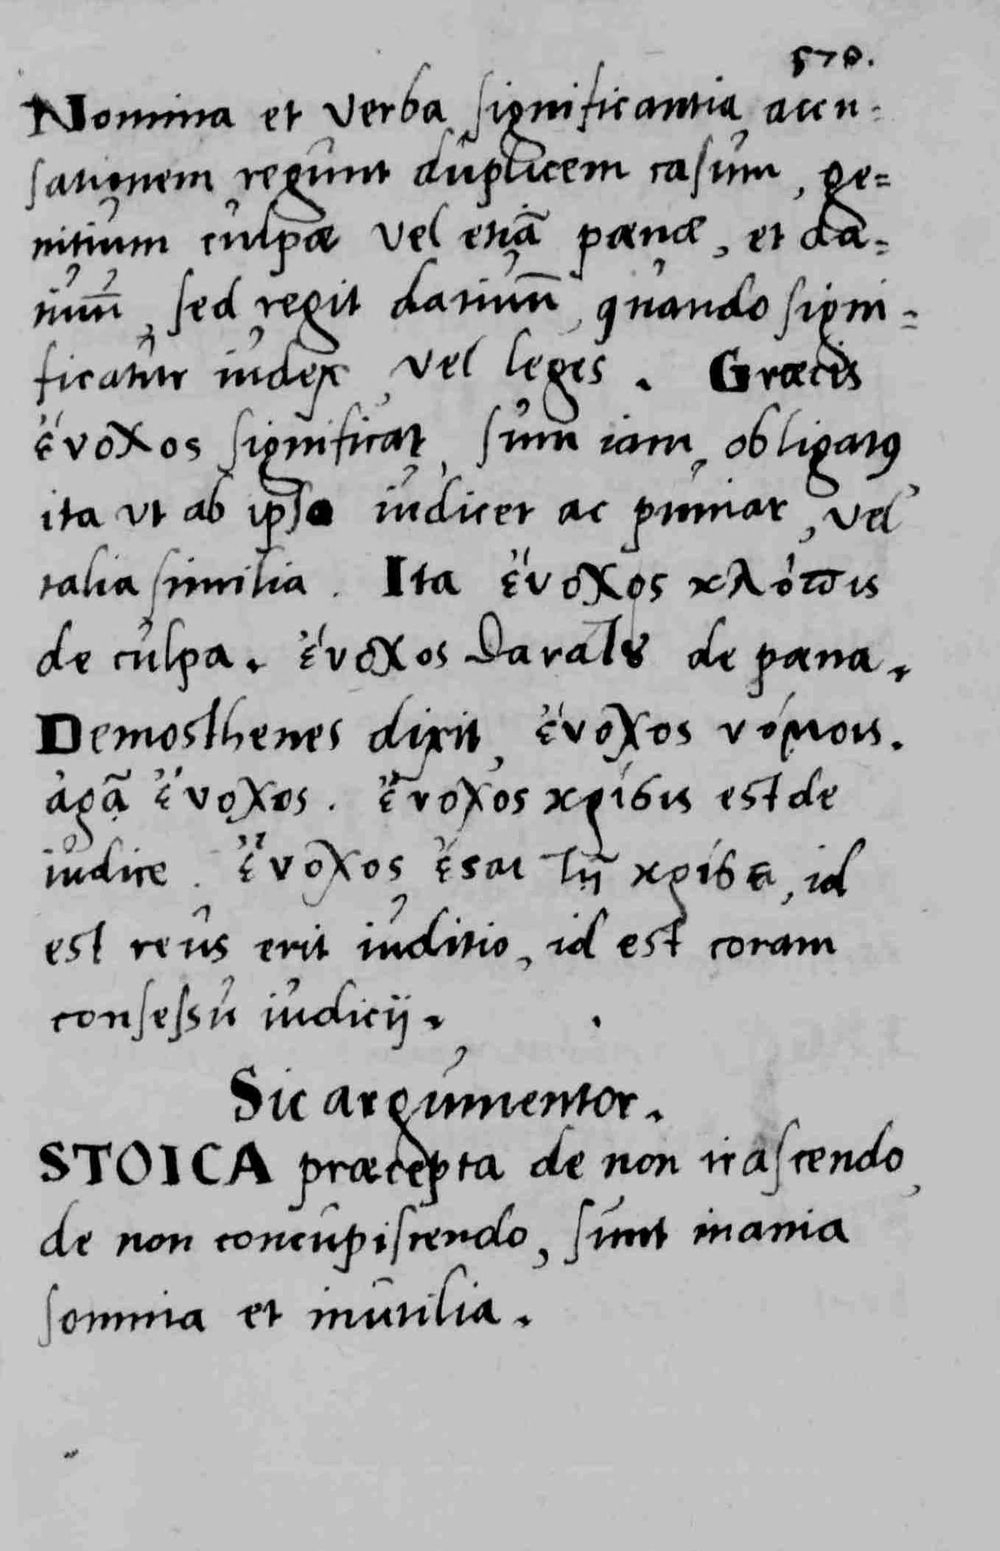 578.
Nomina et verba significantia accu-
sationem regunt duplicem casum, ge=
nitiuum culpæ vel etiã pœnæ, et da=
tiuũ, sed regit datiuũ, quando signi=
ficatur iudex, vel leges. Græcis
ἔνοχος significat, sum iam, obligatꝰ
ita vt ab ipso iudicer ac puniar, vel
talia similia. Ita ἔνοχος κλόπις
de culpa. ἔνοχος θανάτȣ de pœna.
Demosthenes dixit, ἔνοχος νόμοις.
ἀρᾶ ἔνοχος. ἔνοχος κρίσις est de
iudice. ἔνοχος ἔςαι τῇ κρίσει, id
est reus erit iuditio, id est coram
consessu iudicij.
Sic argumentor.
STOICA præcepta de non irascendo,
de non concupiscendo, sunt inania
somnia et inutilia.